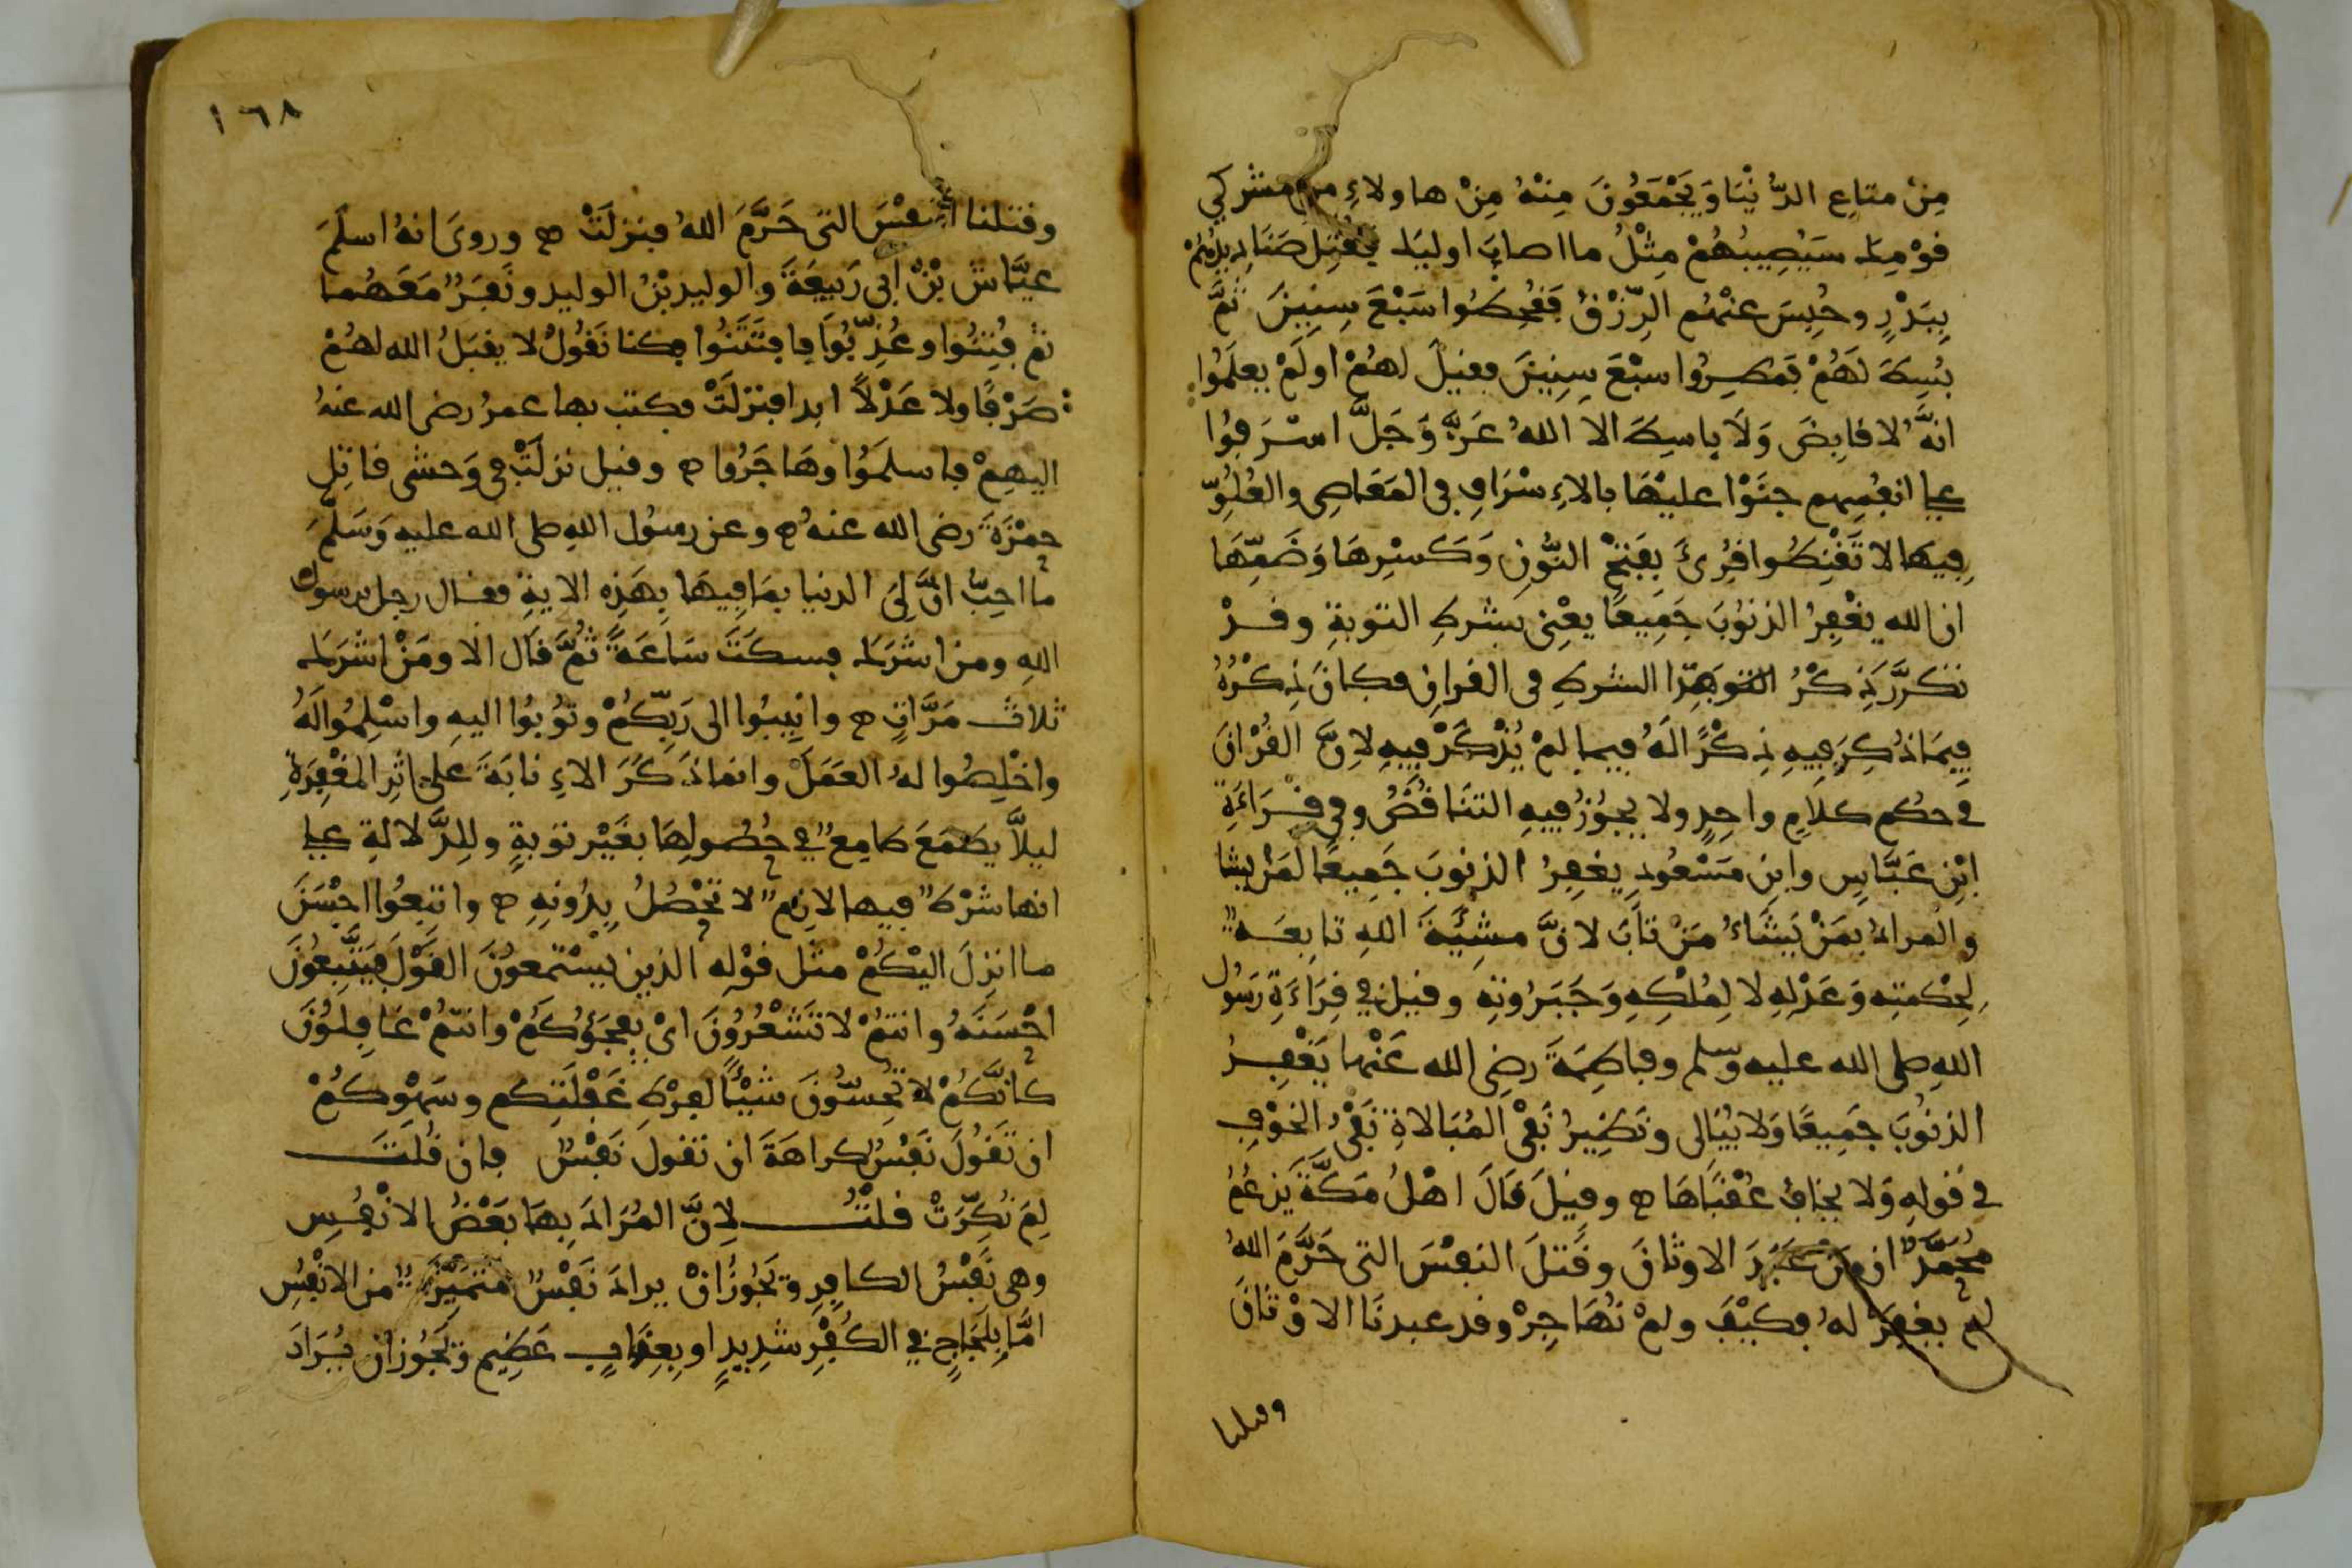 مِنْ متاعِ الدُّنْيَا وَيَجْمَعُونَ مِنْهُ مِنْ هاولاءِ من مشركي
قوْمِكَ سَيُصِيبُهُمْ مِثْلُ ما اصابَ اوليك فقُتِلَ صَنَادِيدُهُمْ
بِبَدْرٍ وحُبِسَ عنْهُم الرِّزْقُ فَقُحِطُوا سَبْعَ سِنِينَ ثمَّ
بُسِطَ لَهُمْ فَمُطِرُوا سبْعَ سِنِينَ فقيلَ لهُمْ اولَمْ يعلَمُوا
انَّهُ لا قابِضَ وَلَا باسِطَ الا اللهُ عَزَّ وَجَلَّ اسْرَفُوا
على انفُسِهم جنَوْا عليْهَا بالاءِسْرَافِ في المَعَاصِى والغُلُوِّ
فِيهَا لا تَقْنِطُوا قُرِئَ بِفَتْحِ النُّونِ وَكَسْرِهَا وَضَمِّهَا
ان الله يغْفِرُ الذنوُبَ جَمِيعًا يعْنِى بشرطِ التوبةِ وقدْ
تكرَّرَ ذِكْرُ هذا الشرطِ فى القرانِ فكانَ ذِكْرُهُ
فِيمَا ذُكِرَ فِيهِ ذِكْرًا لَهُ فيما لمْ يُذْكَرْ فِيهِ لاِنَّ القُرْانَ
فى حكْم كلاَمٍ واحِدٍ ولا يجوُزُ فيهِ التنَاقُضُ وفي قِرَاءَةِ
ابْنِ عَبَّاسِ وابنِ مَسْعُودٍ يغفِرُ الذنوبَ جَمِيعًا لمَنْ يشا
والمرادُ بمَنْ يَشَاءُ مَنْ تابَ لانَّ مشِيَّةَ اللهِ تابِعَةٌ
لِحِكْمتِهِ وَعَدْلِهِ لا لِمُلْكِهِ وَجَبَرُوتِهِ وقيل في قِرَاءَةِ رَسُولِ
اللهِ صلى الله عليه وسلم وفاطِمَةَ رضِى الله عَنْهما يَغْفِرُ
الذنوُبَ جَمِيعًا وَلا يُبَالى ونَظِيرُ نَفْىِ المُبَالاةِ نَفْىُ الخوْفِ
في قولِهِ وَلا يخافُ عُقْبَاهَا ص وقيلَ قَالَ اهْلُ مَكَّةَ يَزعُمُ
مُحَمَّدٌ ان مَن عَبَدَ الاوثانَ وقَتلَ النفْسَ التى حَرَّمَ اللهُ
لم يغفِرْ لهُ فكيْفَ ولمْ نُهَاجِرْ وقد عبدنَا الاوْثانَ
وقتلنا
١٦٨
وقتلنا النفْسَ التى حَرَّمَ اللهُ فنزلَتْ ص وروىَ انهُ اسلَمَ
عيَّاش بْنُ أبى رَبيعَةَ والوليد بْنُ الوليد ونَفَرٌ مَعَهُما
ثم فُتِنُوا وعُذِّبُوا فافتَتَنُوا فكنا نَقُولُ لا يقبَلُ الله لهُمْ
صَرْفًا ولا عَدْلًا ابدا فنزلَتْ فكتب بها عمرُ رضى الله عنهُ
اليهِمْ فاسلمَوُا وهَاجَرُوا ص وقيل نزلَتْ فى وَحشى قاتِلِ
حمْزَةَ رضى الله عنهُ ص وعن رسوُل اللهِ صلى الله عليه وَسَلَّمَ
ما احِبُّ انَّ لِىَ الدنيا بمَا فِيهَا بِهَذِهِ الايةِ فقال رجل يرسول
اللهِ ومن اشرَكَ فسكتَ سَاعَةً ثُمَّ قَالَ الا ومَنْ اشرَكَ
ثلاثَ مَرَّاتٍ ص وانِيبُوا الى رَبِّكُمْ وتوُبُوا اليهِ واسْلِمُوا لَهُ
واخْلِصُوا لهُ العَمَلَ وانماذَكَرَ الاءِنابَةَ على اثِر المغْفِرَةِ
ليلاَّ يطْمَعَ طامِعٌ في حُصُولِهَا بغَيْرِ توْبةٍ ولِلدَّلالةِ على
انها شرْطٌ فيها لازمٌ لا تَحْصُلُ بِدُونِهِ ص واتبِعُوا احْسَنَ
ما انزِلَ اليْكُمْ مثل قوْلِه الذين يسْتَمعوُنَ القوْلَ فيَتَّبِعُونَ
احْسَنَهُ وانتُمْ لا تَشْعُرُونَ اىْ يفجَؤُكُمْ وانتمْ غافِلوُنَ
كانَّكُمْ لا تُحِسُّونَ شيْئًا لفِرْطِ غَفْلَتِكم وسَهْوِكُمْ
ان تَقُولَ نَفْسٌ كراهَةَ ان تقولَ نَفْسٌ فان قُلْتَ
لِمَ نُكِّرَتْ قلْتُ لِانَّ المُرَادَ بِهَا بَعْضُ الانْفُسِ
وهى نَفْسُ الكافِرِ وَيَجُوزُ انْ يرادَ نَفْسٌ مُتَمَيِّزَةٌ من الانْفُسِ
امَّا بِلَجَاجٍ في الكُفْرِ شدِيدٍ او بِعِقَابٍ عَظِيم وَيَجُوز ان يُرَادَ